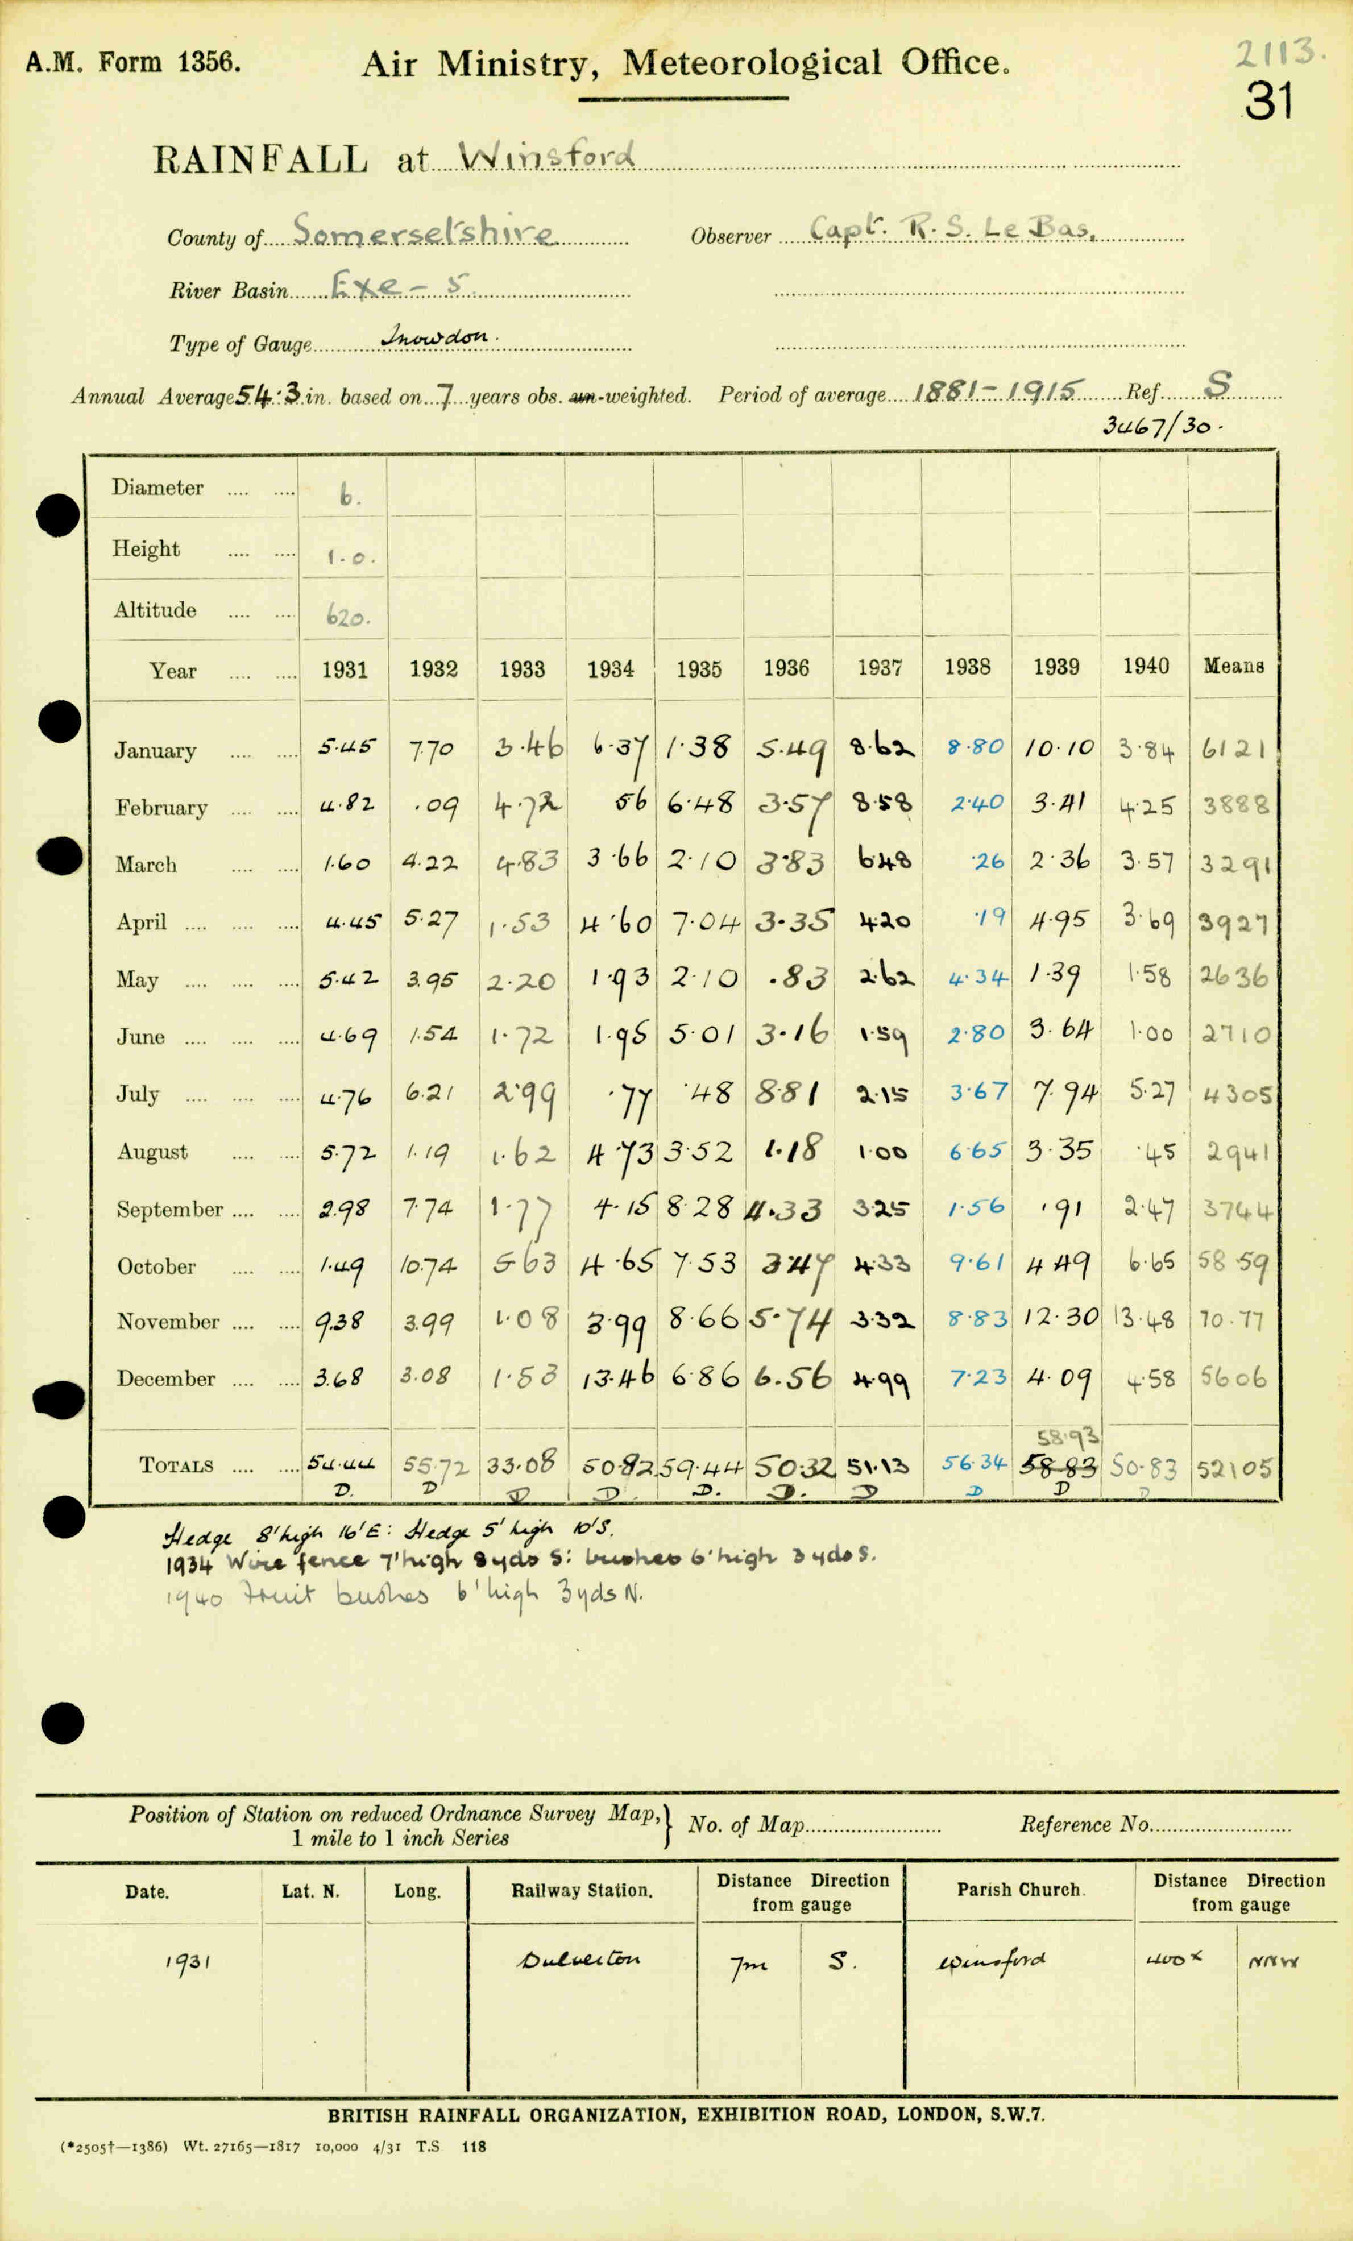 A.M. Form 1356. Air Ministry, Meteorological Office. 2113.
31
RAINFALL at Winsford
County of Somersetshire Observer Capt. R. S. Le Bas.
River Basin Exe - 5
Type of Gauge Snowdon.
Annual Average 54.3 in. based on 7 years obs. un-weighted. Period of average 1881-1915 Ref. S
3467/30.
Diameter 6.
Height 1.0.
Altitude 620.
Year 1931 1932 1933 1934 1935 1936 1937 1938 1939 1940 Means
January 5.45 7.70 3.46 6.37 1.38 5.49 8.62 8.80 10.10 3.84 6121
February 4.82 .09 4.72 56 6.48 3.57 8.58 2.40 3.41 4.25 3888
March 1.60 4.22 4.83 3.66 2.10 3.83 6.48 .26 2.36 3.57 3291
April 4.45 5.27 1.53 4.60 7.04 3.35 4.20 .19 4.95 3.69 3927
May 5.42 3.95 2.20 1.93 2.10 .83 2.62 4.34 1.39 1.58 2636
June 4.69 1.54 1.72 1.95 5.01 3.16 1.59 2.80 3.64 1.00 2710
July 4.76 6.21 2.99 .77 .48 8.81 2.15 3.67 7.94 5.27 4305
August 5.72 1.19 1.62 4.73 3.52 1.18 1.00 6.65 3.35 .45 2941
September 2.98 7.74 1.77 4.15 8.28 4.33 3.25 1.56 .91 2.47 3744
October 1.49 10.74 5.63 4.65 7.53 3.47 4.33 9.61 4.49 6.65 58.59
November 9.38 3.99 1.08 3.99 8.66 5.74 3.32 8.83 12.30 13.48 70.77
December 3.68 3.08 1.53 13.46 6.86 6.56 4.99 7.23 4.09 4.58 5606
58.93
TOTALS 54.44 55.72 33.08 50.82 59.44 50.32 51.13 56.34 58.83 50.83 52105
D. D D D. D. D. D D D D
Hedge 8' high 16' E: Hedge 5' high 10' S.
1934 Wire fence 7' high 8 yds S: bushes 6' high 3 yds S.
1940 Fruit bushes 6' high 3 yds N.
Position of Station on reduced Ordnance Survey Map, } No. of Map Reference No.
1 mile to 1 inch Series
Date. Lat. N. Long. Railway Station. Distance Direction from gauge Parish Church. Distance Direction from gauge
1931 Dulverton 7m S. Winsford 400x NNW
BRITISH RAINFALL ORGANIZATION, EXHIBITION ROAD, LONDON, S.W.7.
(*2505†—1386) Wt. 27165—1817 10,000 4/31 T.S 118